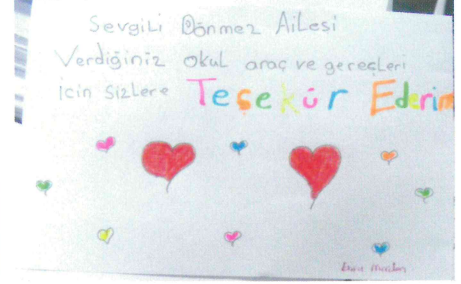 Sevgili Dönmez Ailesi
Verdiğiniz okul araç ve gereçleri
için sizlere Teşekür Ederim